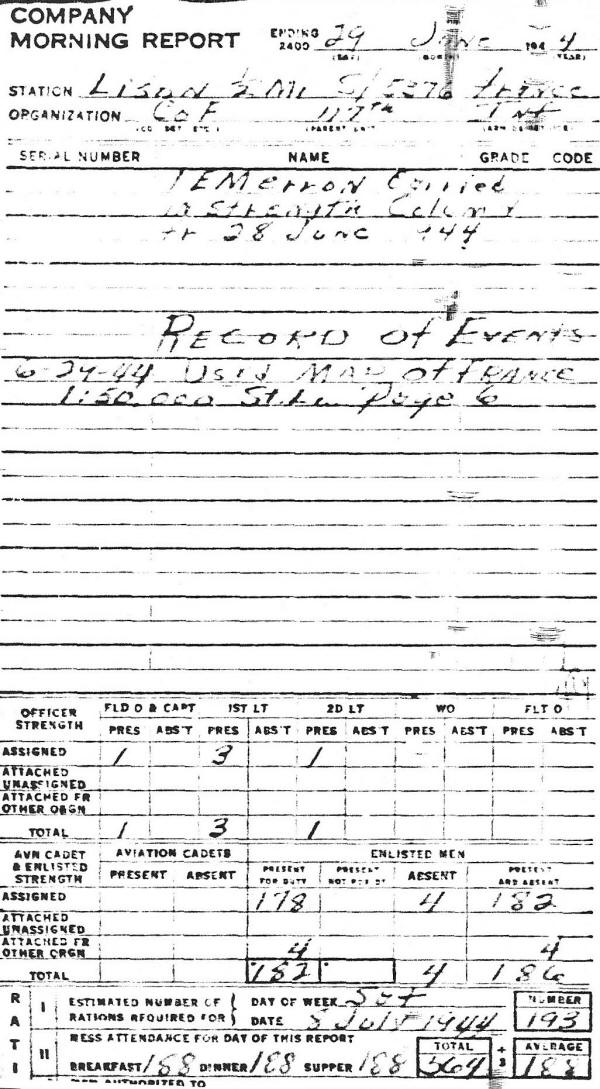 COMPANY
MORNING REPORT ENDING 2400 29 June 1944
(DAY) (MONTH) (YEAR)
STATION Lison ½ Mi S/5376 France
ORGANIZATION Co F 117th Inf
(CO. DET. ETC.) (PARENT UNIT) (ARM OR SERVICE)
SERIAL NUMBER NAME GRADE CODE
1 EM Carried
in Strength Column
28 June 1944
RECORD of EVENTS
6-29-44 Used MAP of FRANCE
1:50,000 Page 6
OFFICER STRENGTH FLD O & CAPT 1ST LT 2D LT WO FLT O
PRES ABS'T PRES ABS'T PRES ABS'T PRES ABS'T PRES ABS'T
ASSIGNED 1 3 1
ATTACHED UNASSIGNED
ATTACHED FR OTHER ORGN
TOTAL 1 3 1
AVN CADET & ENLISTED STRENGTH AVIATION CADETS ENLISTED MEN
PRESENT ABSENT PRESENT FOR DUTY PRESENT NOT FOR DY ABSENT PRESENT AND ABSENT
ASSIGNED 178 4 182
ATTACHED UNASSIGNED
ATTACHED FR OTHER ORGN 4 4
TOTAL 182 4 186
RATI
I ESTIMATED NUMBER OF RATIONS REQUIRED FOR DAY OF WEEK Sat NUMBER
DATE July 1944 193
II MESS ATTENDANCE FOR DAY OF THIS REPORT TOTAL ÷ 3 AVERAGE
BREAKFAST 188 DINNER 188 SUPPER 188 564 188
MEN AUTHORIZED TO